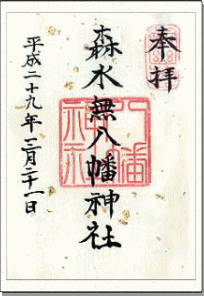 奉拝
森水無八幡神社
平成二十九年三月二十一日